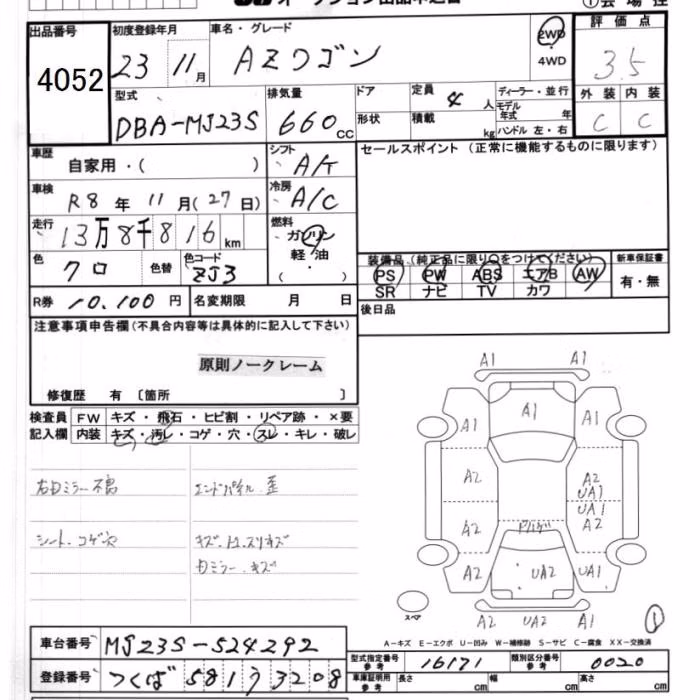 ①会場控
出品番号 4052
初度登録年月 23 11月
車名・グレード AZワゴン
2WD・4WD
評価点 3.5
外装 C 内装 C
型式 DBA-MJ23S
排気量 660CC
ドア 形状
定員 4人
積載 kg
ディーラー・並行
モデル年式 年
ハンドル 左・右
車歴 自家用・( )
シフト A/T
セールスポイント(正常に機能するものに限ります)
車検 R8年11月(27日)
冷房 A/C
走行 13万8千816km
燃料 ガソリン 軽油 ・ ( )
色 クロ 色替 色コード ZJ3
装備品(純正品に限り○をつけてください)
PS PW ABS エアB AW
SR ナビ TV カワ
新車保証書 有・無
R券 10.100円
名変期限 月 日
後日品
注意事項申告欄(不具合内容等は具体的に記入して下さい)
原則ノークレーム
修復歴 有 〔箇所 〕
検査員記入欄
FW キズ・飛石・ヒビ割・リペア跡・×要
内装 キズ・汚レ・コゲ・穴・スレ・キレ・破レ
右Dミラー不良
エンドパネル歪
シート、コゲ穴
Dミラー、キズ
A1 A1
A1 A1 A1
A2 A2 UA1
UA1
A2 A2
A2 UA2 UA1
A2 UA2 A1
スペア
①
A-キズ E-エクボ U-凹み W-補修跡 S-サビ C-腐食 XX-交換済
車台番号 MJ23S-524292
登録番号 つくば581ワ3208
型式指定番号 参考 16171
類別区分番号 参考 0020
車庫証明用 参考 長さ cm 幅 cm 高さ cm